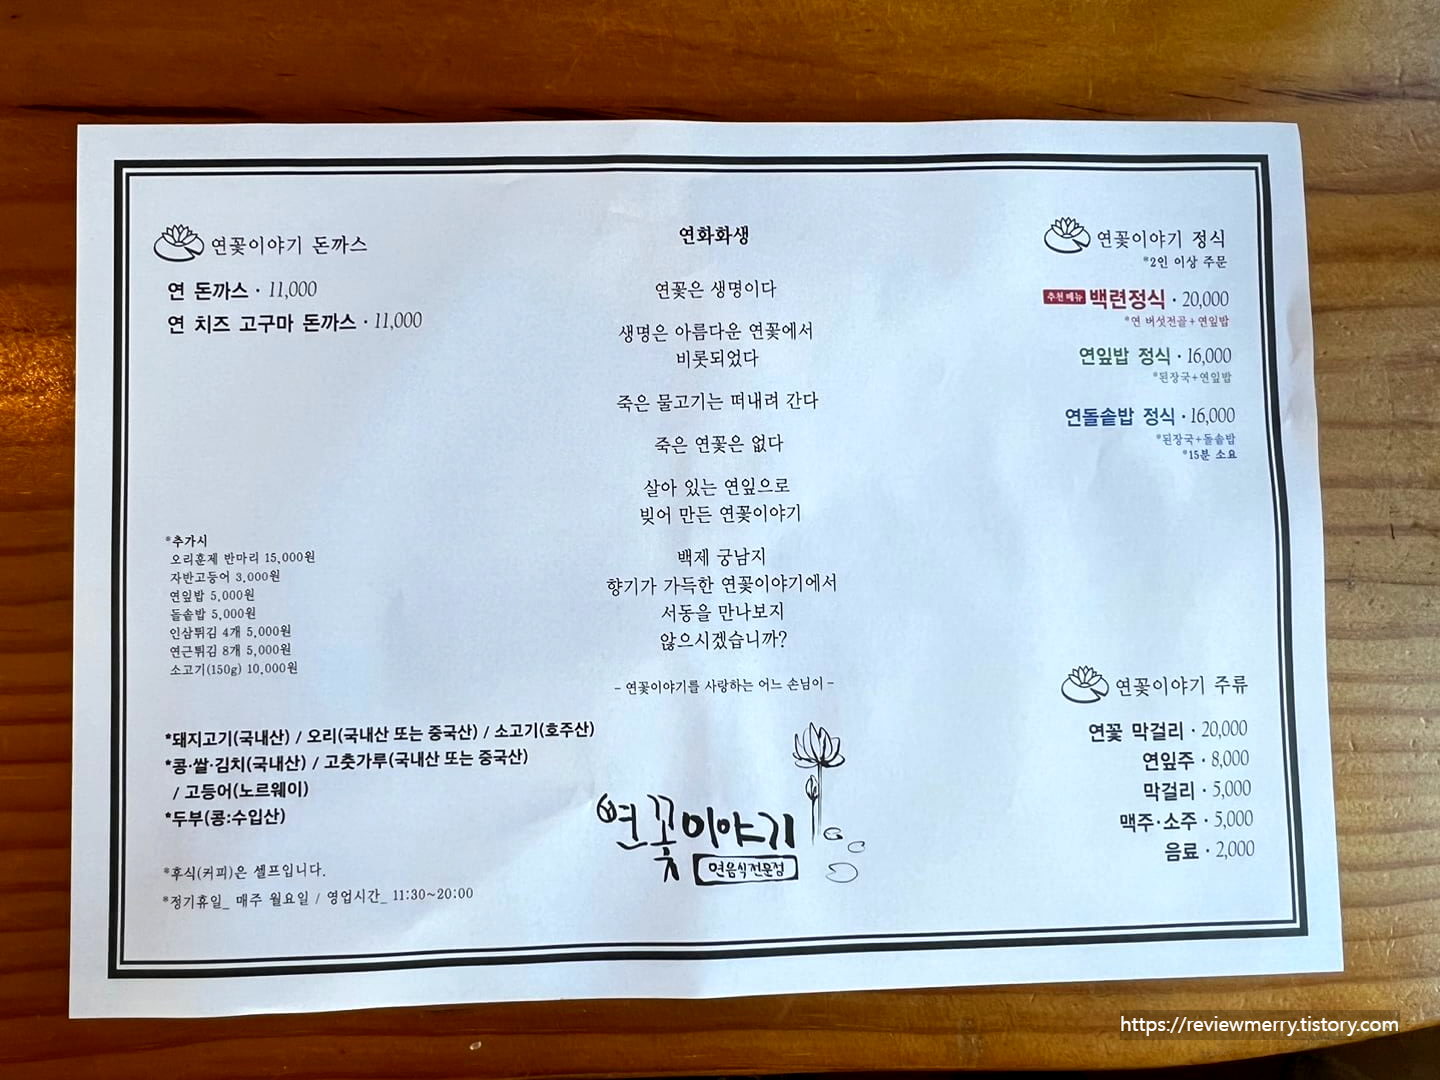 연꽃이야기 돈까스
연 돈까스 · 11,000
연 치즈 고구마 돈까스 · 11,000
*추가시
오리훈제 반마리 15,000원
자반고등어 3,000원
연잎밥 5,000원
돌솥밥 5,000원
인삼튀김 4개 5,000원
연근튀김 8개 5,000원
소고기(150g) 10,000원
*돼지고기(국내산) / 오리(국내산 또는 중국산) / 소고기(호주산)
*콩·쌀·김치(국내산) / 고춧가루(국내산 또는 중국산)
/ 고등어(노르웨이)
*두부(콩:수입산)
*후식(커피)은 셀프입니다.
*정기휴일_ 매주 월요일 / 영업시간_ 11:30~20:00
연화화생
연꽃은 생명이다
생명은 아름다운 연꽃에서
비롯되었다
죽은 물고기는 떠내려 간다
죽은 연꽃은 없다
살아 있는 연잎으로
빚어 만든 연꽃이야기
백제 궁남지
향기가 가득한 연꽃이야기에서
서동을 만나보지
않으시겠습니까?
- 연꽃이야기를 사랑하는 어느 손님이 -
연꽃이야기
연음식전문점
연꽃이야기 정식
*2인 이상 주문
추천메뉴 백련정식 · 20,000
*연 버섯전골+연잎밥
연잎밥 정식 · 16,000
*된장국+연잎밥
연돌솥밥 정식 · 16,000
*된장국+돌솥밥
*15분 소요
연꽃이야기 주류
연꽃 막걸리 · 20,000
연잎주 · 8,000
막걸리 · 5,000
맥주·소주 · 5,000
음료 · 2,000
https://reviewmerry.tistory.com